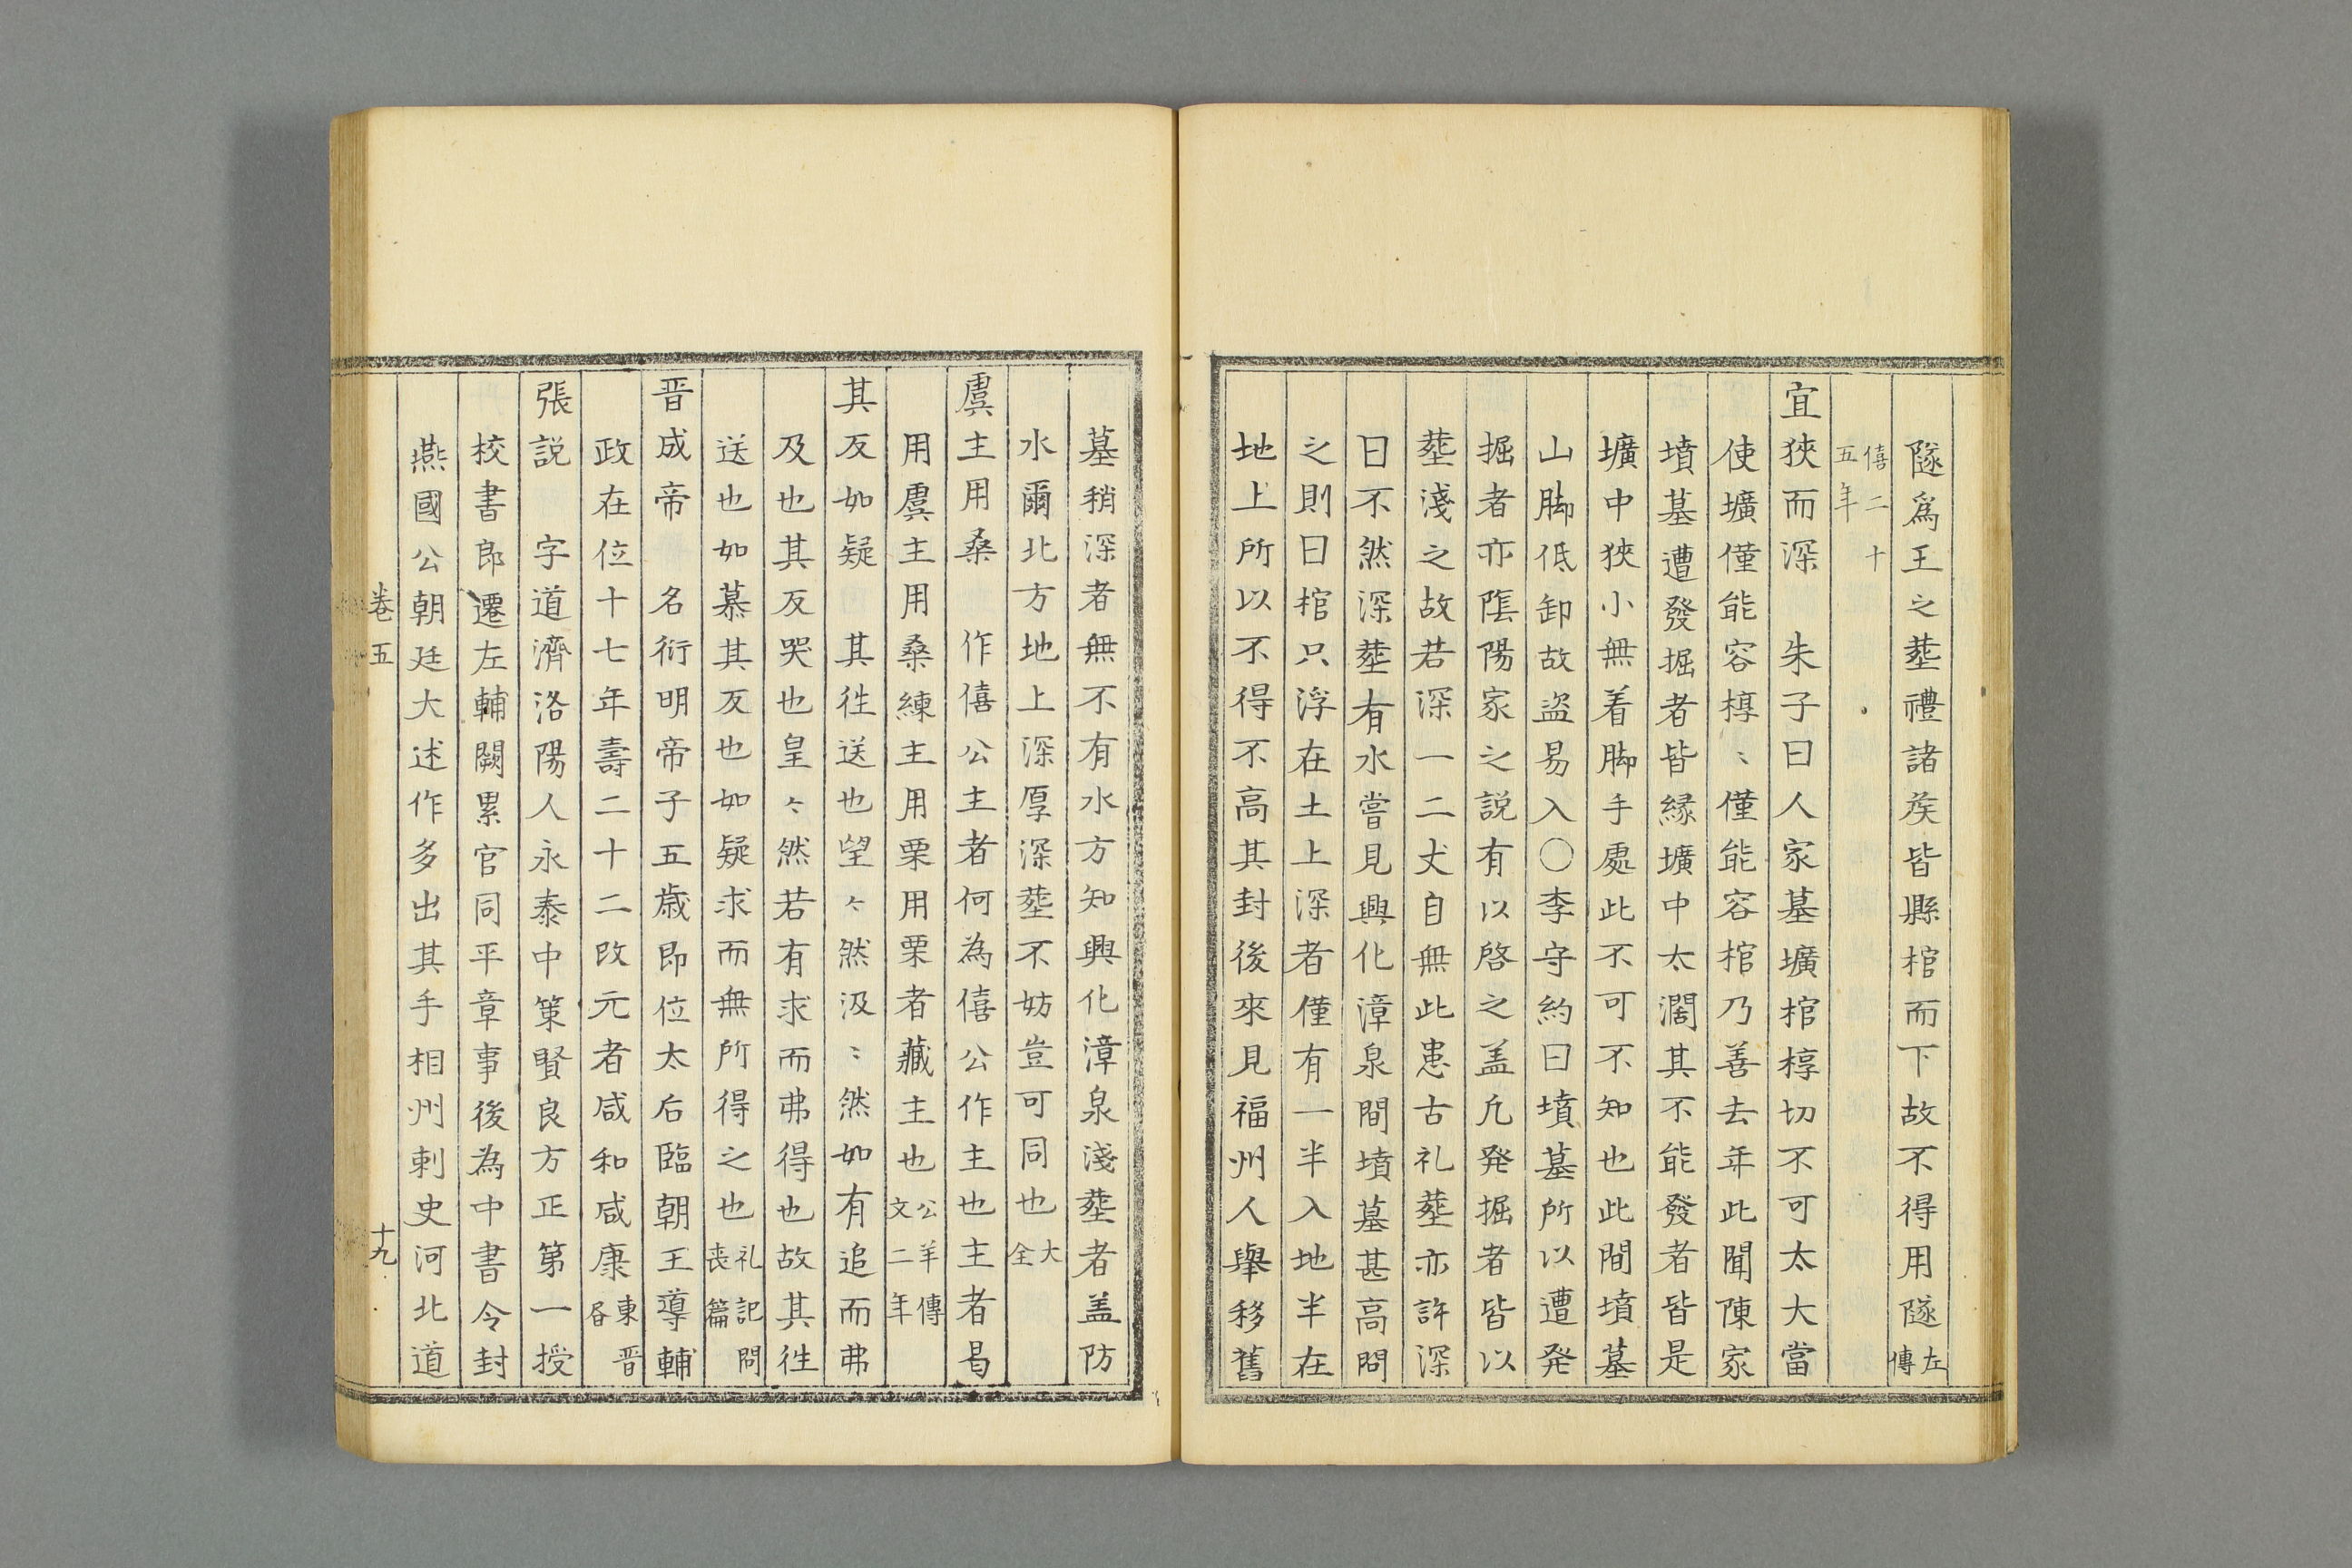 隧爲王之塟禮諸矦皆縣棺而下故不得用隧左傳
僖二十五年
宜狹而深　朱子曰人家墓壙棺椁切不可太大當
使壙僅能容椁〻僅能容棺乃善去年此聞陳家
墳墓遭發掘者皆緣壙中太濶其不能發者皆是
壙中狹小無着脚手處此不可不知也此間墳墓
山脚低卸故盗易入〇李守約曰墳墓所以遭発
掘者亦隂陽家之説有以啓之盖凢発掘者皆以
塟淺之故若深一二丈自無此患古礼塟亦許深
曰不然深塟有水嘗見興化漳泉間墳墓甚高問
之則曰棺只浮在土上深者僅有一半入地半在
地上所以不得不高其封後來見福州人舉移舊
墓稍深者無不有水方知興化漳泉淺塟者盖防
水爾北方地上深厚深塟不妨豈可同也大全
虞主用桑　作僖公主者何為僖公作主也主者曷
用虞主用桑練主用栗用栗者藏主也公羊傳文二年
其反如疑　其徃送也望〻然汲〻然如有追而弗
及也其反哭也皇〻然若有求而弗得也故其徃
送也如慕其反也如疑求而無所得之也礼記問喪篇
晋成帝　名衍明帝子五歳即位太后臨朝王導輔
政在位十七年壽二十二改元者咸和咸康東晋
張説　字道濟洛陽人永泰中策賢良方正第一授
校書郎遷左輔闕累官同平章事後為中書令封
燕國公朝廷大述作多出其手相州刺史河北道
卷五　十九